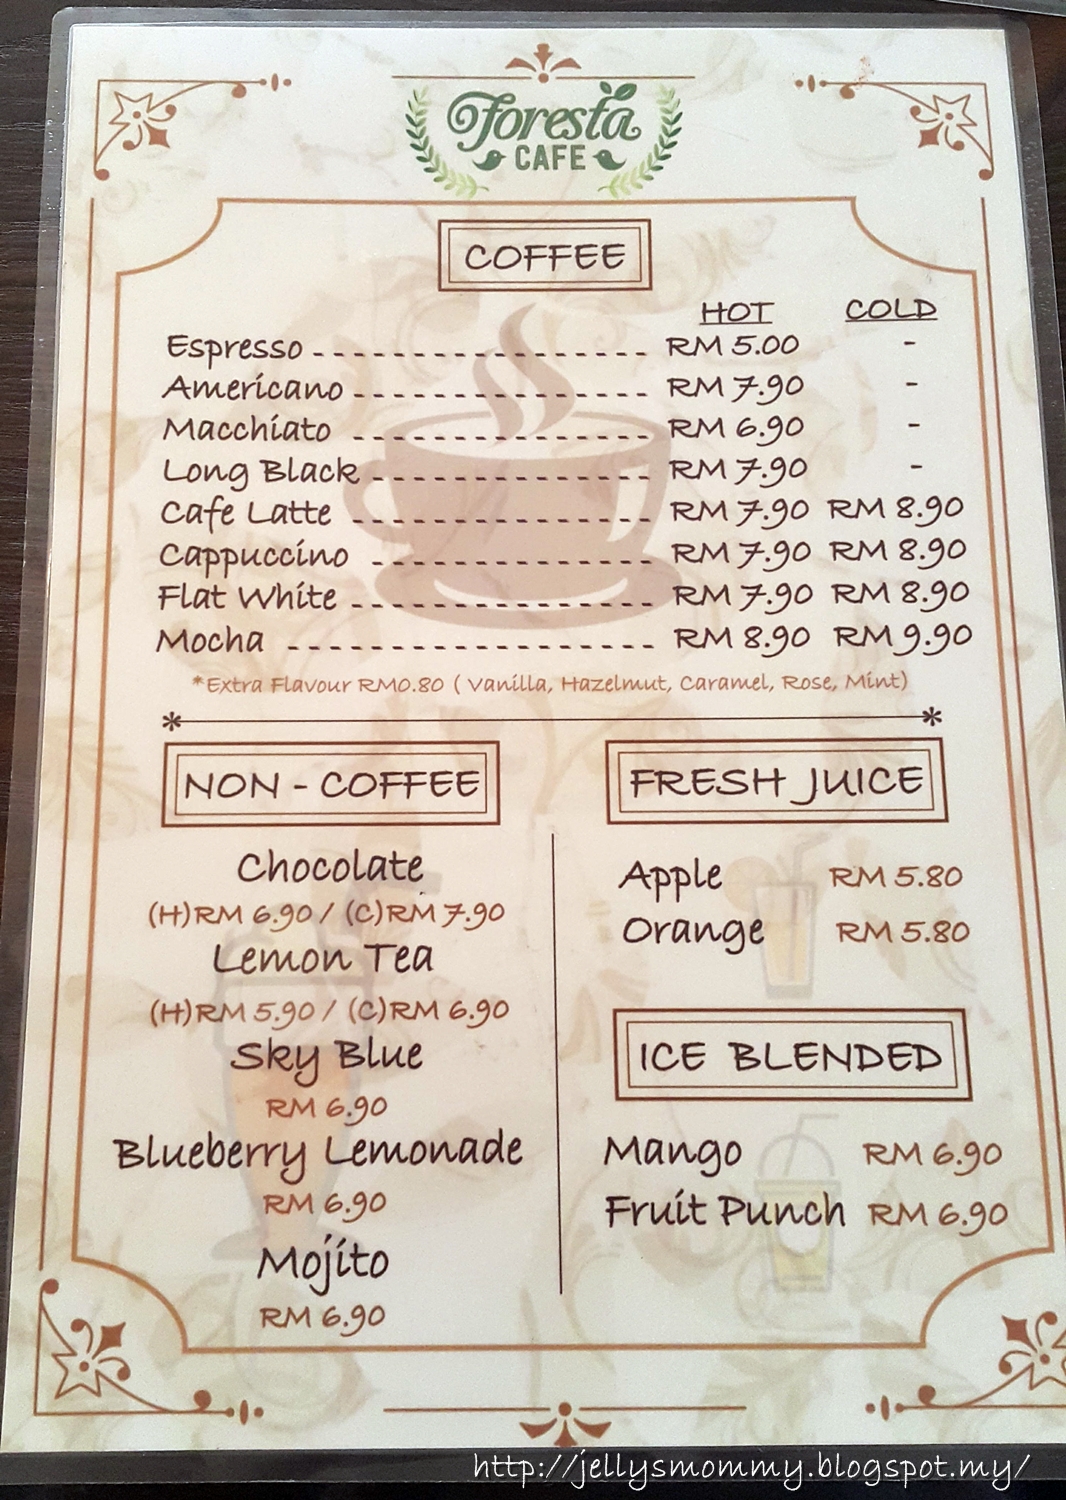 Foresta
CAFE
COFFEE
HOT COLD
Espresso - - - - - - - - - - - - - - - - - RM 5.00 -
Americano - - - - - - - - - - - - - - - RM 7.90 -
Macchiato - - - - - - - - - - - - - - - RM 6.90 -
Long Black - - - - - - - - - - - - - - RM 7.90 -
Cafe Latte - - - - - - - - - - - - - - - RM 7.90 RM 8.90
Cappuccino - - - - - - - - - - - - - - RM 7.90 RM 8.90
Flat White - - - - - - - - - - - - - - - RM 7.90 RM 8.90
Mocha - - - - - - - - - - - - - - - - - - RM 8.90 RM 9.90
*Extra Flavour RM0.80 ( Vanilla, Hazelmut, Caramel, Rose, Mint)
NON - COFFEE
Chocolate
(H)RM 6.90 / (C)RM 7.90
Lemon Tea
(H)RM 5.90 / (C)RM 6.90
Sky Blue
RM 6.90
Blueberry Lemonade
RM 6.90
Mojito
RM 6.90
FRESH JUICE
Apple RM 5.80
Orange RM 5.80
ICE BLENDED
Mango RM 6.90
Fruit Punch RM 6.90
http://jellysmommy.blogspot.my/